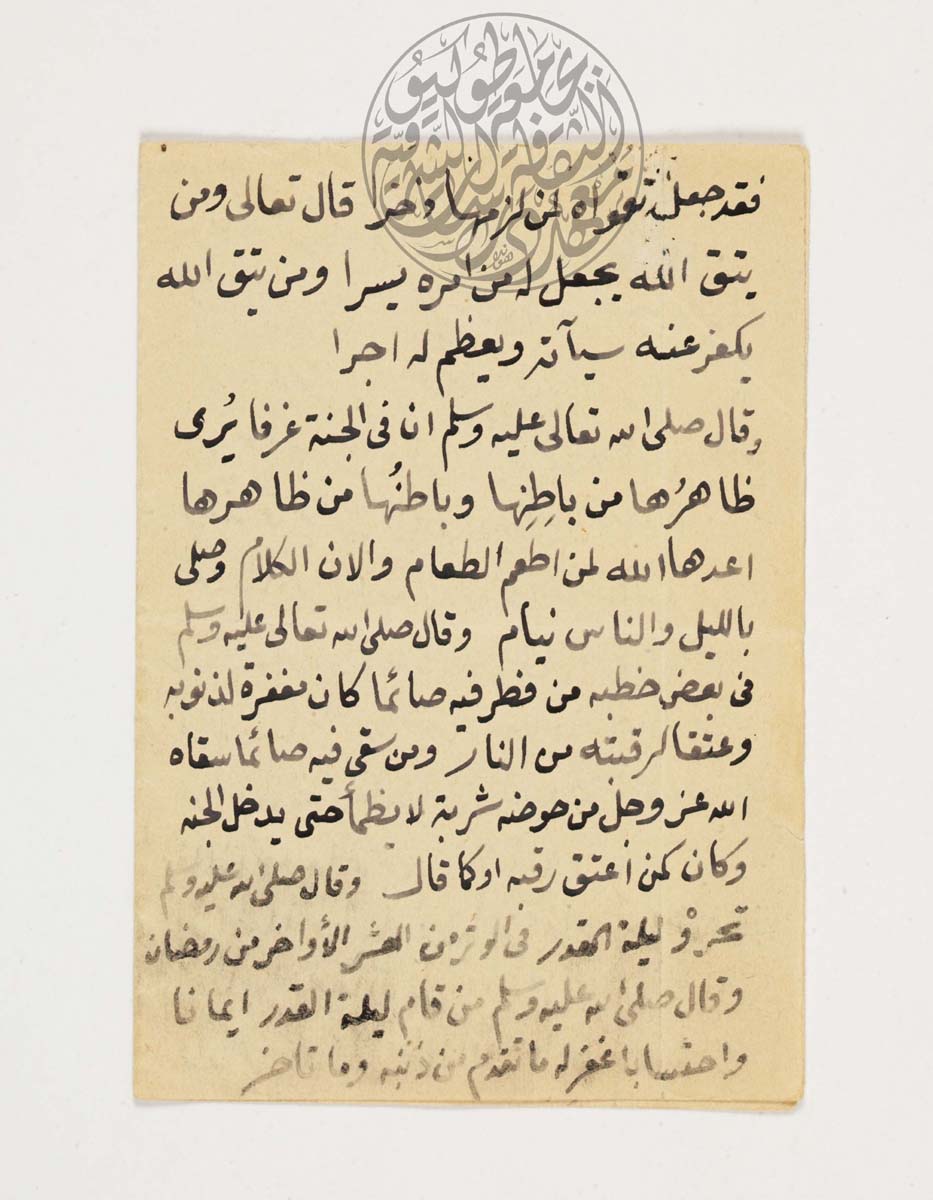 فقد جعل تقواه لمن لزمها ذخرا قال تعالى ومن
يتق الله يجعل له من امره يسرا ومن يتق الله
يكفر عنه سيآته ويعظم له اجرا
وقال صلى الله تعالى عليه وسلم ان فى الجنة غرفا يُرى
ظاهرُها من باطِنِها وباطنُها من ظاهرها
اعدها الله لمن اطعم الطعام والان الكلام وصلى
بالليل والناس نيام وقال صلى الله تعالى عليه وسلم
فى بعض خطبه من فطر فيه صائما كان مغفرة لذنوبه
وعتقا لرقبته من النار ومن سقى فيه صائما سقاه
الله عز وجل من حوضه شربة لا يظمأ حتى يدخل الجنه
وكان كمن أعتق رقبه او كما قال وقال صلى الله عليه وسلم
تحروْ ليلة القدر فى الوتر من العشر الأواخر من رمضان
وقال صلى الله عليه وسلم من قام ليلة القدر ايمانا
واحتسابا غفر له ما تقدم من ذنبه وما تاخر